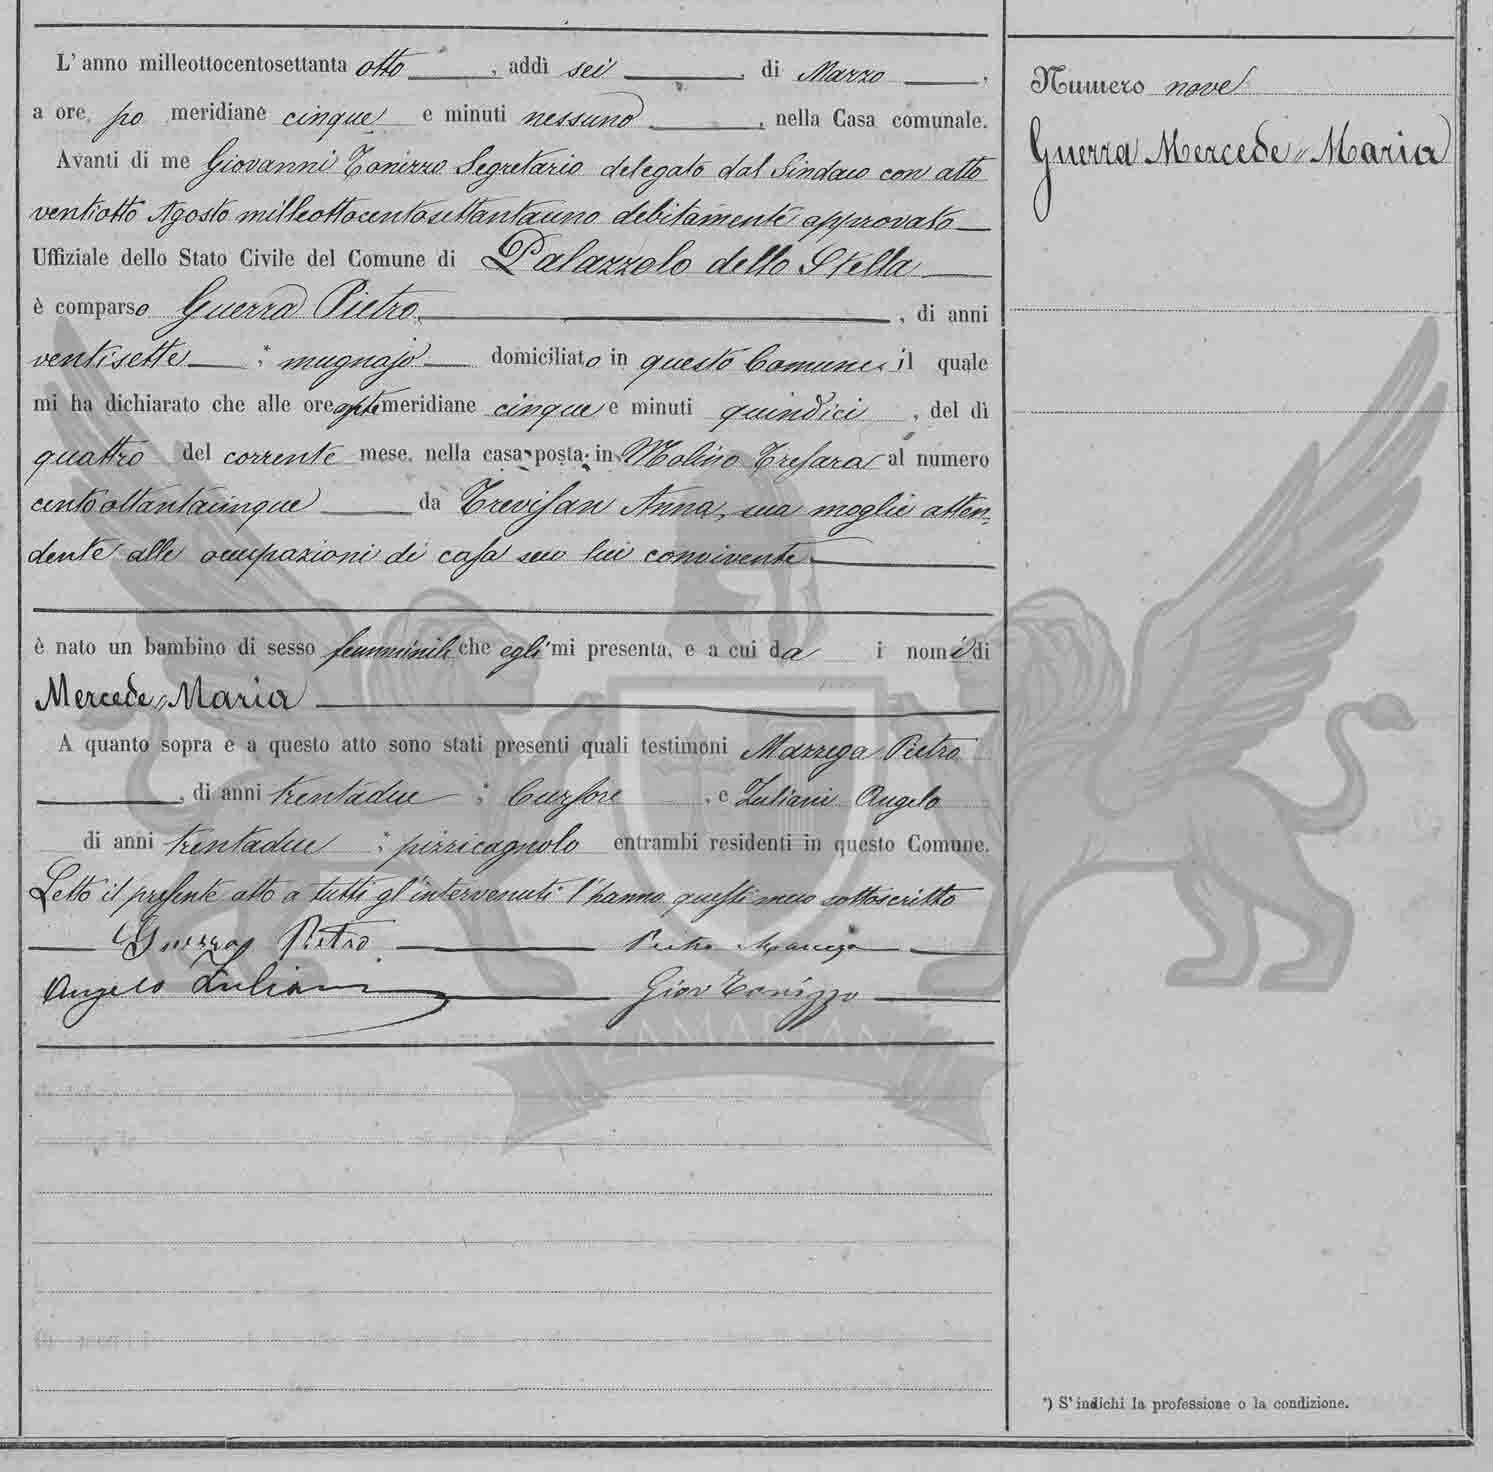 L' anno milleottocentosettanta otto, addì sei, di Marzo,
a ore po meridiane cinque e minuti nessuno, nella Casa comunale.
Avanti di me Giovanni Tonizzo Segretario delegato dal Sindaco con atto
ventiotto Agosto milleottocentosettantauno debitamente approvato
Uffiziale dello Stato Civile del Comune di Palazzolo dello Stella
è comparso Guerra Pietro, di anni
ventisette ;* mugnajo domiciliato in questo Comune, il quale
mi ha dichiarato che alle ore meridiane cinque e minuti quindici, del dì
quattro del corrente mese, nella casa posta in Molino Tresara al numero
centoottantacinque da Trevisan Anna, sua moglie atten-
dente alle occupazioni di casa seco lui convivente
è nato un bambino di sesso femminile che egli mi presenta, e a cui da i nomi di
Mercede Maria
A quanto sopra e a questo atto sono stati presenti quali testimoni Mazzega Pietro
, di anni trentadue ; Cursore, e Zuliani Angelo
di anni trentadue ;* pizzicagnolo entrambi residenti in questo Comune.
Letto il presente atto a tutti gl'intervenuti l'hanno questi meco sottoscritto
Guerra Pietro Pietro Mazzega
Angelo Zuliani Giov Tonizzo
Numero nove
Guerra Mercede Maria
ZAMARIAN
*) S' indichi la professione o la condizione.